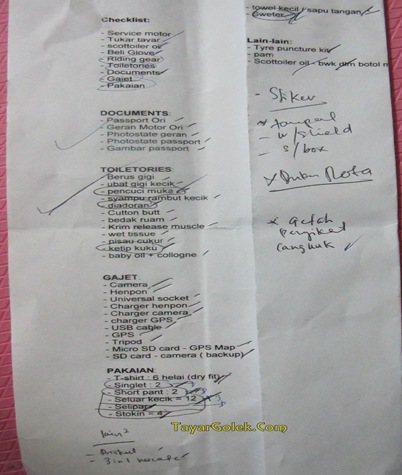 Checklist:
- Service motor
- Tukar tayar
- scottoiler oil
- Beli Glove
- Riding gear
- Toiletories
- Documents
- Gajet
- Pakaian
DOCUMENTS:
- Passport Ori
- Geran Motor Ori
- Photostate geran
- Photostate passport
- Gambar passport
TOILETORIES:
- Berus gigi
- ubat gigi kecik
- pencuci muka
- syampu rambut kecik
- diadoran
- Cutton butt
- bedak ruam
- Krim release muscle
- wet tissue
- pisau cukur
- ketip kuku
- baby oil + collogne
GAJET:
- Camera
- Henpon
- Universal socket
- Charger henpon
- Charger camera
- charger GPS
- USB cable
- GPS
- Tripod
- Micro SD card - GPS Map
- SD card - camera ( backup)
PAKAIAN:
- T-shirt : 6 helai (dry fit)
- Singlet : 2
- Short pant : 2
- Seluar kecik = 12
- Selipar
- Stokin = 4
- towel kecil / sapu tangan
- sweter
Lain-lain:
- Tyre puncture kit
- pam
- Scottoiler oil - bwk dlm botol m
- Stiker
- w/shield
- s/box
TayarGolek.Com